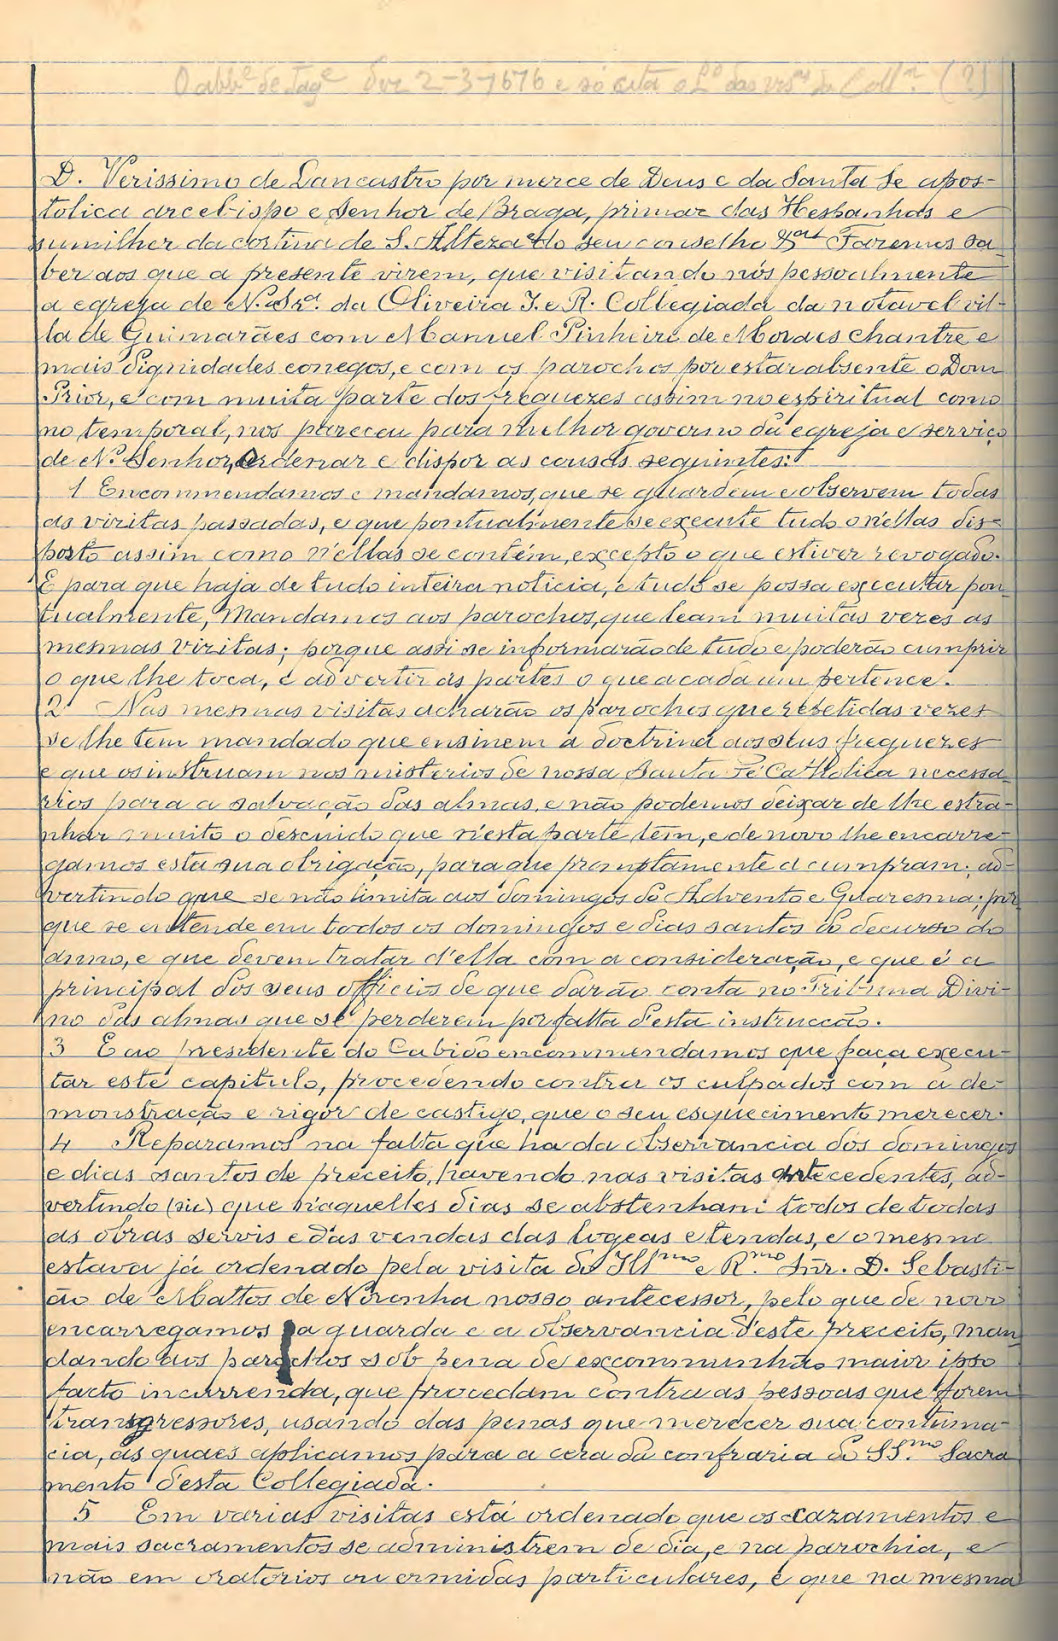 O abb.e de Tag.e diz 2-3-1676 e só cita o L.o das vis.as da Coll.a (?)
D. Verissimo de Lancastro por merce de Deus e da Santa Se apos-
tolica arcebispo e Senhor de Braga, primaz das Hespanhas e
sumilher da cortina de S. Alteza e do seu conselho &.ª Fazemos sa-
ber aos que a presente virem, que visitando nós pessoalmente
a egreja de N.ª Sr.ª da Oliveira I. e R. Collegiada da notavel vil-
la de Guimarães com Manuel Pinheiro de Moraes chantre e
mais dignidades conegos, e com os parochos por estar absente o Dom
Prior, e com muita parte dos freguezes assim no espiritual como
no temporal, nos pareceu para milhor governo da egreja e serviço
de N.º Senhor, ordenar e dispor as cousas seguintes:
1 Encommendamos e mandamos, que se guardem e observem todas
as vizitas passadas, e que pontualmente se execute tudo o n'ellas dis-
posto assim como n'ellas se contém, excepto o que estiver revogado.
E para que haja de tudo inteira noticia, e tudo se possa executar pon-
tualmente, Mandamos aos parochos, que leam muitas vezes as
mesmas vizitas; porque assi se informarão de tudo e poderão cumprir
o que lhe toca, e advertir ás partes o que a cada um pertence.
2 Nas mesmas visitas acharão os parochos que repetidas vezes
se lhe tem mandado que ensinem a doctrina aos seus freguezes
e que os instruam nos misterios de nossa Santa Fé Catholica necessa-
rios para a salvação das almas, e não podemos deixar de lhe estra-
nhar muito o descuido que n'esta parte têm, e de novo lhe encarre-
gamos esta sua obrigação, para que promptamente a cumpram; ad-
vertindo que se não limita aos domingos do Advento e Quaresma; por
que se entende em todos os domingos e dias santos do decurso do
anno, e que devem tratar d'ella com a consideração, e que é a
principal dos seus officios de que darão conta no Tribunal Divi-
no das almas que se perderem por falta d'esta instrucção.
3 E ao presidente do Cabido encommendamos que faça execu-
tar este capitulo, procedendo contra os culpados com a de-
monstração e rigor de castigo, que o seu esquecimento merecer.
4 Reparamos na falta que ha da observancia dos domingos
e dias santos de preceito, havendo nas visitas antecedentes, ad-
vertindo (sic) que n'aquelles dias se abstenham todos de todas
as obras servis e das vendas das logeas e tendas, e o mesmo
estava já ordenado pela visita do Ill.mo e R.mo Snr. D. Sebasti-
ão de Mattos de Noronha nosso antecessor, pelo que de novo
encarregamos a guarda e a observancia d'este preceito, man
dando aos parochos sob pena de excommunhão maior ipso
facto incurrenda, que procedam contra as pessoas que forem
transgressores, usando das penas que merecer sua contuma-
cia, as quaes aplicamos para a cera da confraria do SS.mo Sacra
mento d'esta Collegiada.
5 Em varias visitas está ordenado que os cazamentos e
mais sacramentos se administrem de dia, e na parochia, e
não em oratorios ou ermidas particulares, e que na mesma